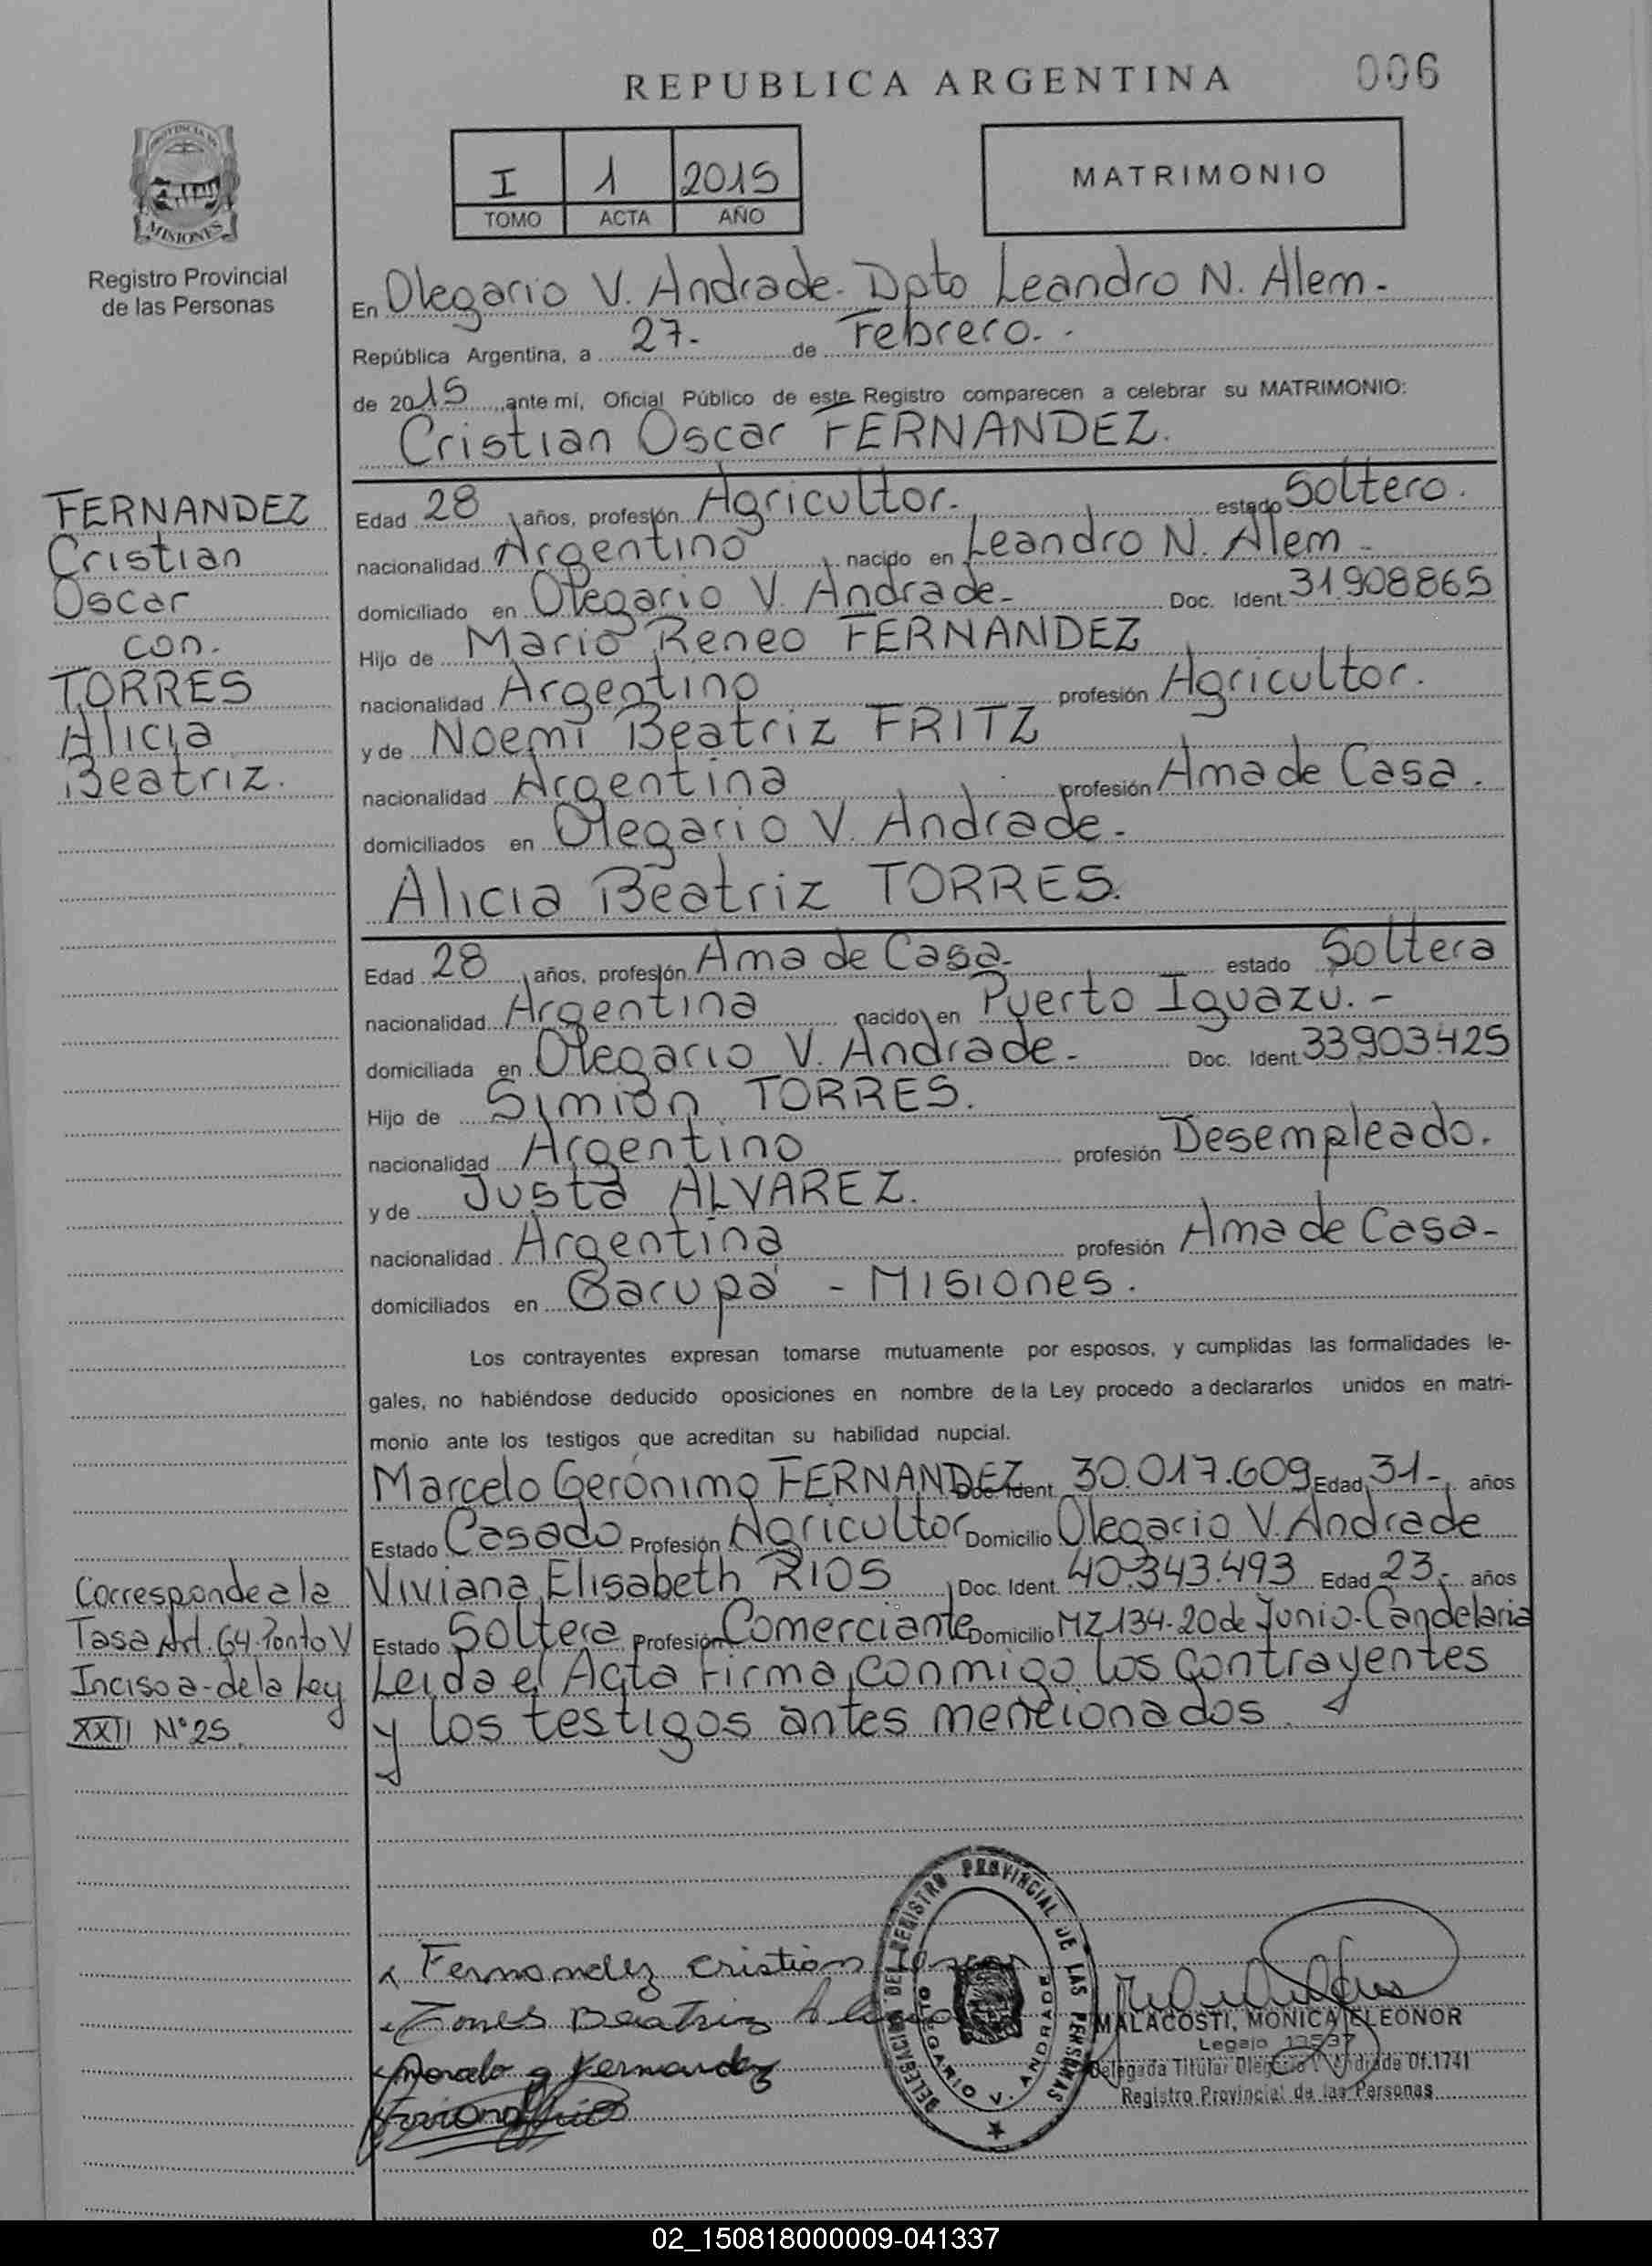 REPUBLICA ARGENTINA
006
PROVINCIA DE
MISIONES
Registro Provincial
de las Personas
I 1 2015
TOMO ACTA AÑO
MATRIMONIO
En Olegario V. Andrade. Dpto Leandro N. Alem.-
República Argentina, a 27.- de Febrero.-
de 2015, ante mí, Oficial Público de este Registro comparecen a celebrar su MATRIMONIO:
Cristian Oscar FERNANDEZ.
FERNANDEZ
Cristian
Oscar
con.
TORRES
Alicia
Beatriz.
Edad 28 años, profesión Agricultor. estado Soltero.
nacionalidad Argentino nacido en Leandro N. Alem-
domiciliado en Olegario V. Andrade- Doc. Ident. 31.908865
Hijo de Mario Reneo FERNANDEZ
nacionalidad Argentino profesión Agricultor.
y de Noemi Beatriz FRITZ
nacionalidad Argentina profesión Ama de Casa.
domiciliados en Olegario V. Andrade-
Alicia Beatriz TORRES.
Edad 28 años, profesión Ama de Casa- estado Soltera
nacionalidad Argentina nacido en Puerto Iguazu.-
domiciliada en Olegario V. Andrade- Doc. Ident. 33903425
Hijo de Simión TORRES.
nacionalidad Argentino profesión Desempleado.
y de Justa ALVAREZ.
nacionalidad Argentina profesión Ama de Casa-
domiciliados en Garupá - Misiones.
Los contrayentes expresan tomarse mutuamente por esposos, y cumplidas las formalidades le-
gales, no habiéndose deducido oposiciones en nombre de la Ley procedo a declararlos unidos en matri-
monio ante los testigos que acreditan su habilidad nupcial.
Marcelo Gerónimo FERNANDEZ Doc. Ident. 30.017.609 Edad 31- años
Estado Casado Profesión Agricultor Domicilio Olegario V. Andrade
Viviana Elisabeth RIOS Doc. Ident. 40.343.493 Edad 23- años
Estado Soltera Profesión Comerciante Domicilio MZ 134-20 de Junio-Candelaria
Leida el Acta Firma conmigo los contrayentes
y los testigos antes mencionados.
Corresponde a la
Tasa Art. 64. Ponto V
Inciso a- de la Ley
XXII N° 25.
Fernandez Cristian Oscar
Torres Beatriz Alicia
Marcelo G Fernandez
DELEGACION DEL REGISTRO PROVINCIAL DE LAS PERSONAS
OLEGARIO V. ANDRADE
MALACOSTI, MONICA ELEONOR
Legajo 12537
Delegada Titular Olegario V. Andrade Of.1741
Registro Provincial de las Personas
02_150818000009-041337